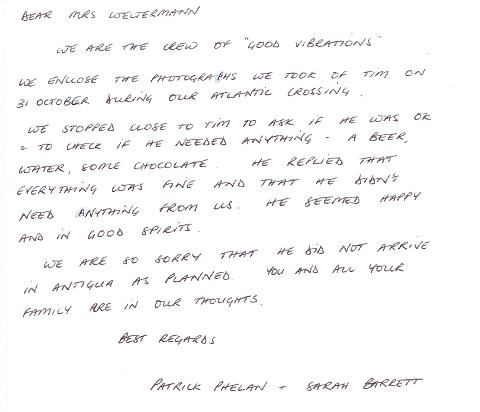 DEAR MRS WELTERMANN
WE ARE THE CREW OF "GOOD VIBRATIONS"
WE ENCLOSE THE PHOTOGRAPHS WE TOOK OF TIM ON
31 OCTOBER DURING OUR ATLANTIC CROSSING.
WE STOPPED CLOSE TO TIM TO ASK IF HE WAS OK
& TO CHECK IF HE NEEDED ANYTHING - A BEER,
WATER, SOME CHOCOLATE. HE REPLIED THAT
EVERYTHING WAS FINE AND THAT HE DIDN'T
NEED ANYTHING FROM US. HE SEEMED HAPPY
AND IN GOOD SPIRITS.
WE ARE SO SORRY THAT HE DID NOT ARRIVE
IN ANTIGUA AS PLANNED. YOU AND ALL YOUR
FAMILY ARE IN OUR THOUGHTS.
BEST REGARDS
PATRICK PHELAN + SARAH BARRETT